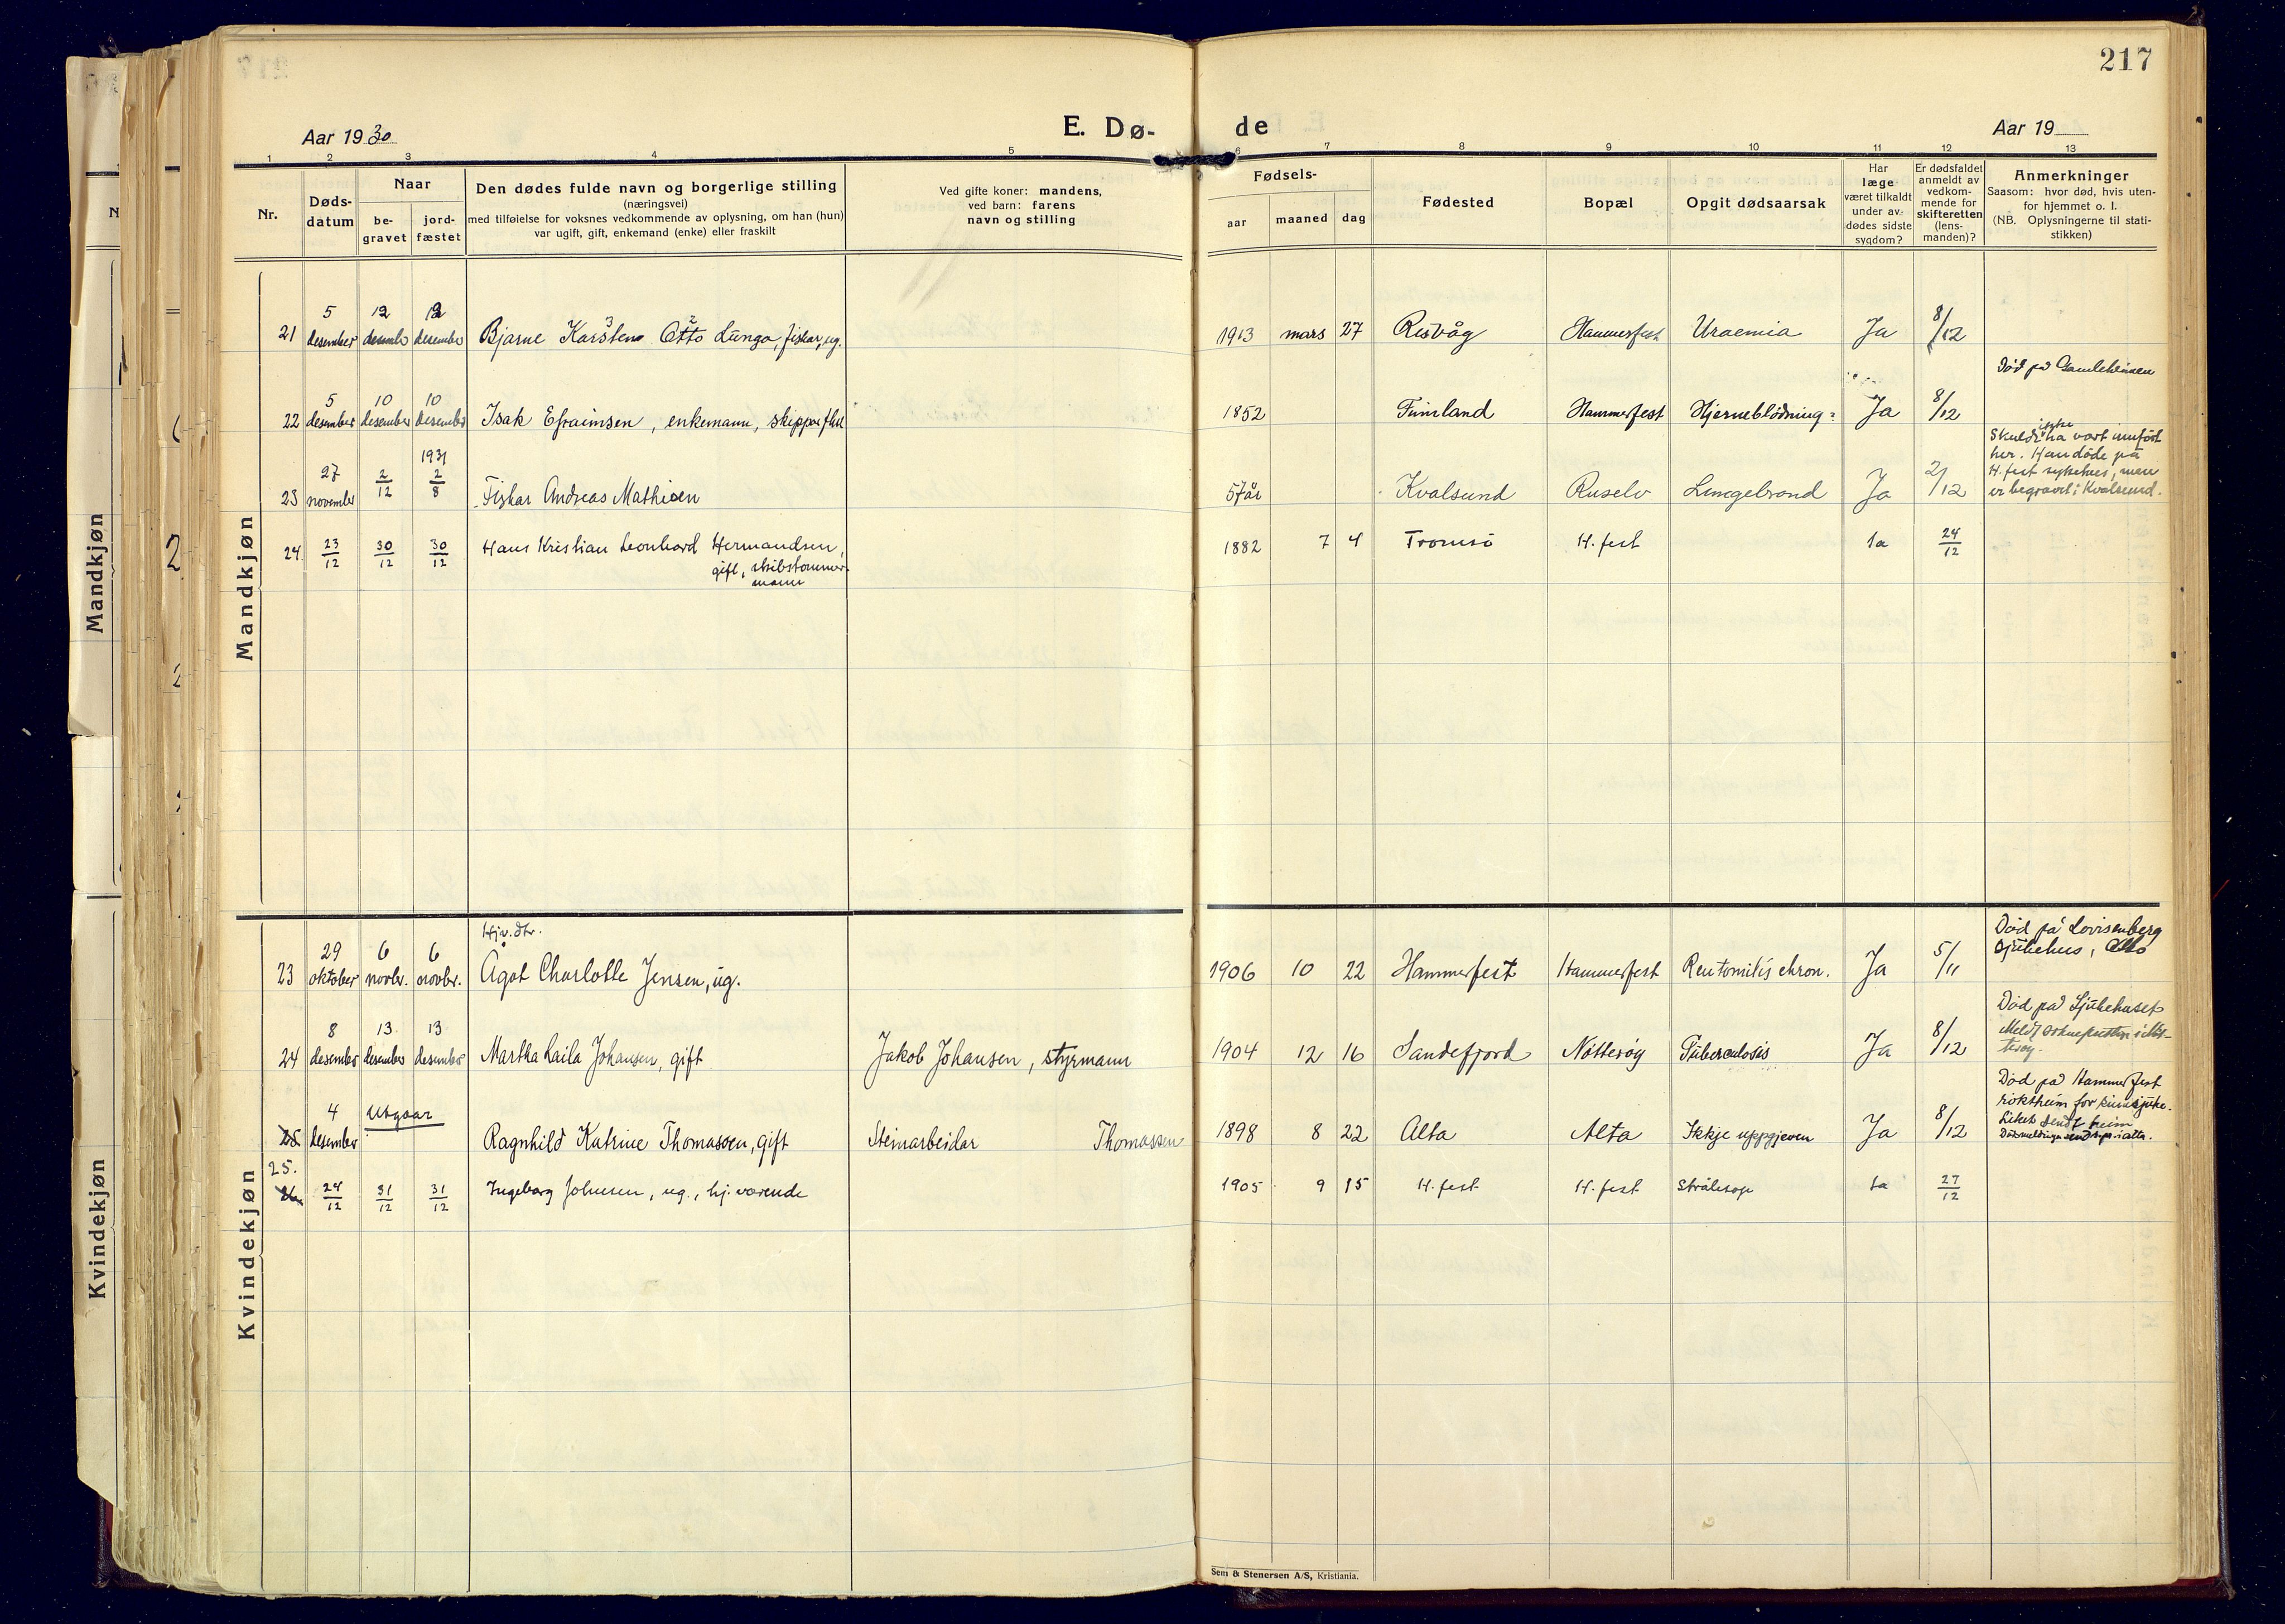 217
Aar 1930
E. Dø-
de
Aar 19
1 2 3 4 5 6 7 8 9 10 11 12 13
Nr.
Døds-
datum
Naar
be-
gravet
jord-
fæstet
Den dødes fulde navn og borgerlige stilling
(næringsvei)
med tilføielse for voksnes vedkommende av oplysning, om han (hun)
var ugift, gift, enkemand (enke) eller fraskilt
Ved gifte koner: mandens,
ved barn: farens
navn og stilling
Fødsels-
aar maaned dag
Fødested
Bopæl
Opgit dødsaarsak
Har
læge
været tilkaldt
under av-
dødes sidste
sygdom?
Er dødsfaldet
anmeldt av
vedkom-
mende for
skifteretten
(lens-
manden)?
Anmerkninger
Saasom: hvor død, hvis uten-
for hjemmet o. l.
(NB. Oplysningerne til stati-
stikken)
Mandkjøn
21 5 desember 12 desember 12 desember Bjarne Karsten Otto Lunga, fiskar, ug. 1913 mars 27 Risvåg Hammerfest Uraemia Ja 8/12
3 2
22 5 desember 10 desember 10 desember Isak Efraimsen, enkemann, skipper 1852 Finnland Hammerfest Hjerneblödning Ja 8/12 Död på Gamleheimen
23 27 november 2/12 1931 2/8 Fiskar Andreas Mathisen 57 år Kvalsund Ruselv Lungebrand Ja 2/12
Skulde ikke ha vart innført
her. Han døde på
H.fest sykehus, men
er begravet i Kvalsund.
24 23/12 30/12 30/12 Hans Kristian Leonhard Hermandsen,
gift, skibstømmer-
mann
1882 7 4 Tromsö H.fest Ja 24/12
Kvindekjøn
Hjv. dtr.
23 29 oktober 6 novbr. 6 novbr. Ågot Charlotte Jensen, ug. 1906 10 22 Hammerfest Hammerfest chron. Ja 5/11
Död på Lovisenberg
Sjukehus, Oslo
24 8 desember 13 desember 13 desember Martha Laila Johansen, gift Jakob Johansen, styrmann 1904 12 16 Sandefjord Nötteröy Tuberculosis Ja 8/12
Död på Sjukehuset
25 4 desember Utgaar Ragnhild Katrine Thomassen, gift Steinarbeidar Thomassen 1898 8 22 Alta Alta Ikkje uppgjeven Ja 8/12
Död på Hammerfest
röktheim for sinnsjuke.
Liket sendt heim
25.
26 24/12 31/12 31/12 Ingeborg Johnsen, ug., hj. værende 1905 9 15 H.fest H.fest Strålesop Ja 27/12
Sem & Stenersen A/S, Kristiania.
Mandkjøn
Kvindekjøn